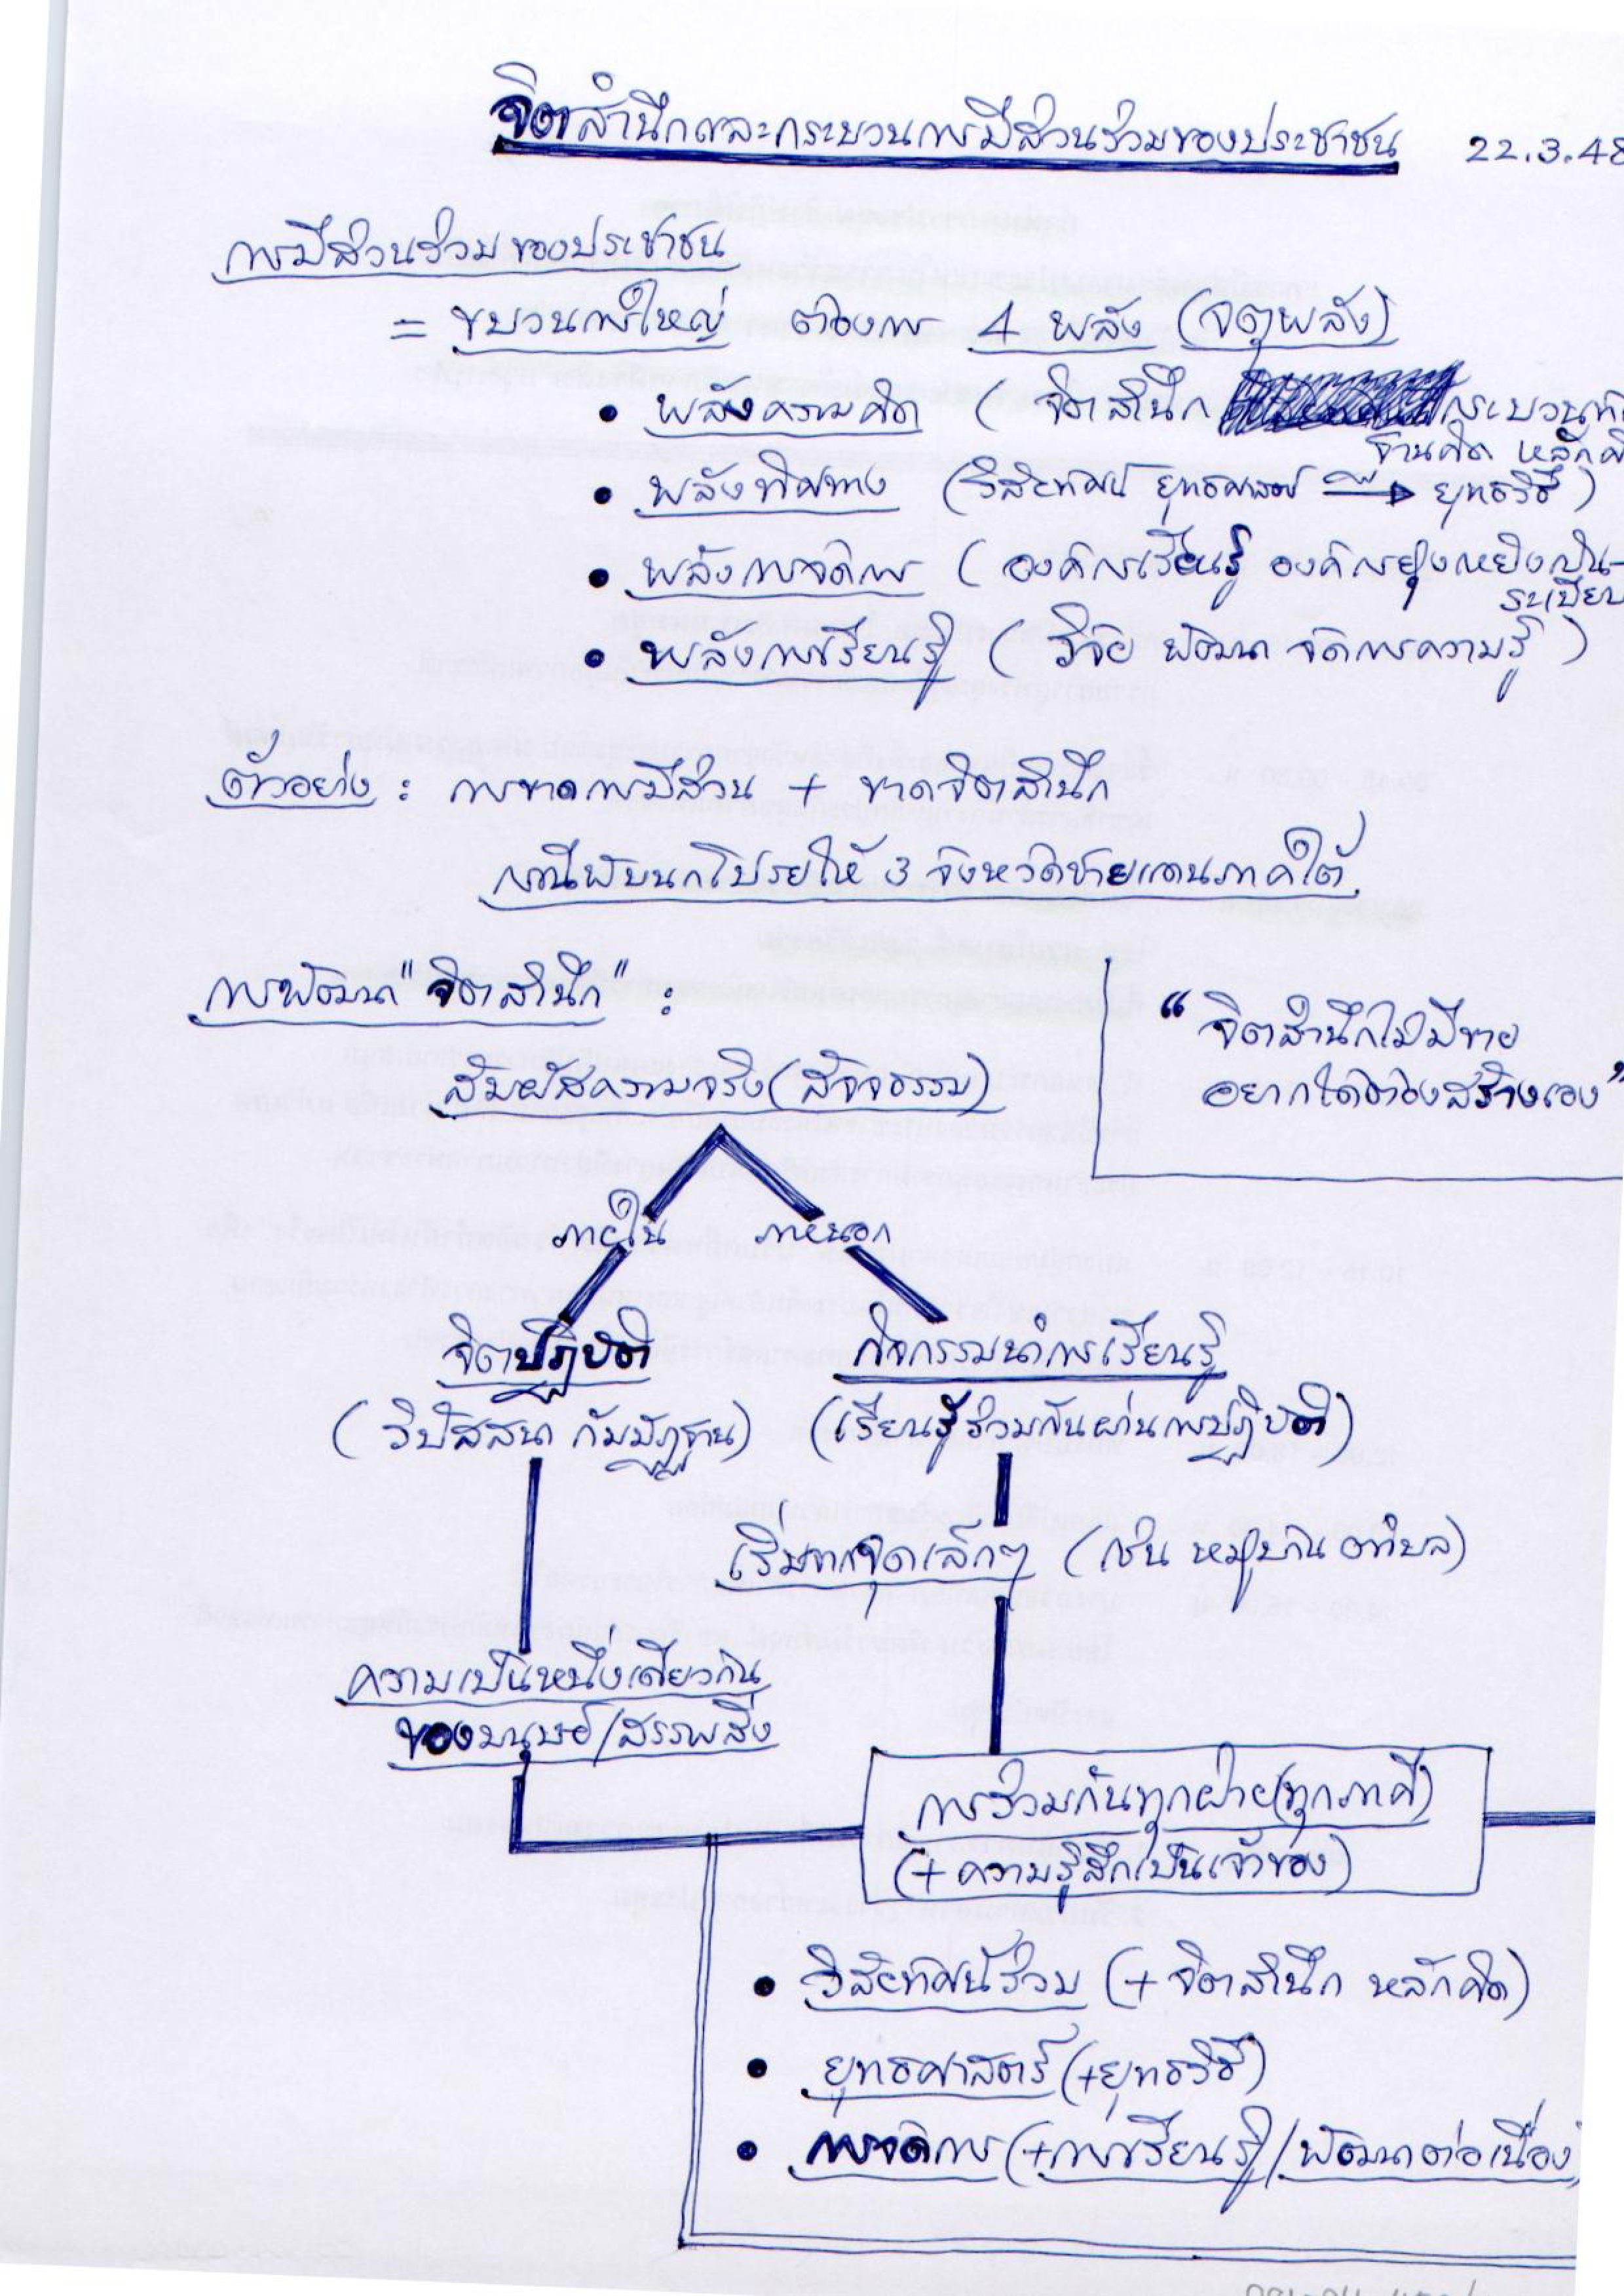 จิตสำนึกและกระบวนการมีส่วนร่วมของประชาชน 22.3.48
การมีส่วนร่วมของประชาชน
= ขบวนการใหญ่ ต้องการ 4 พลัง (จตุพลัง)
• พลังความคิด (จิตสำนึก กระบวน
ฐานคิด หลัก
• พลังทิศทาง (วิสัยทัศน์ ยุทธศาสตร์ → ยุทธวิธี)
• พลังการจัดการ (องค์กรเรียนรู้ องค์กรยุ่งเหยิงเป็น-
ระเบียบ
• พลังการเรียนรู้ (วิจัย พัฒนา จัดการความรู้)
ตัวอย่าง : การขาดการมีส่วน + ขาดจิตสำนึก
กรณีพับนกโปรยให้ 3 จังหวัดชายแดนภาคใต้
การพัฒนา "จิตสำนึก" :
"จิตสำนึกไม่มีขาย
อยากได้ต้องสร้างเอง"
สัมผัสความจริง (สัจจธรรม)
ภายใน ภายนอก
จิตปฏิบัติ กิจกรรมนำการเรียนรู้
(วิปัสสนา กัมมัฏฐาน) (เรียนรู้ร่วมกันผ่านการปฏิบัติ)
เริ่มจากจุดเล็กๆ (เช่น หมู่บ้าน ตำบล)
ความเป็นหนึ่งเดียวกัน
ของมนุษย์/สรรพสิ่ง
การร่วมกันทุกฝ่าย(ทุกภาคี)
(+ความรู้สึกเป็นเจ้าของ)
• วิสัยทัศน์ร่วม (+จิตสำนึก หลักคิด)
• ยุทธศาสตร์ (+ยุทธวิธี)
• การจัดการ (+การเรียนรู้/พัฒนาต่อเนื่อง)